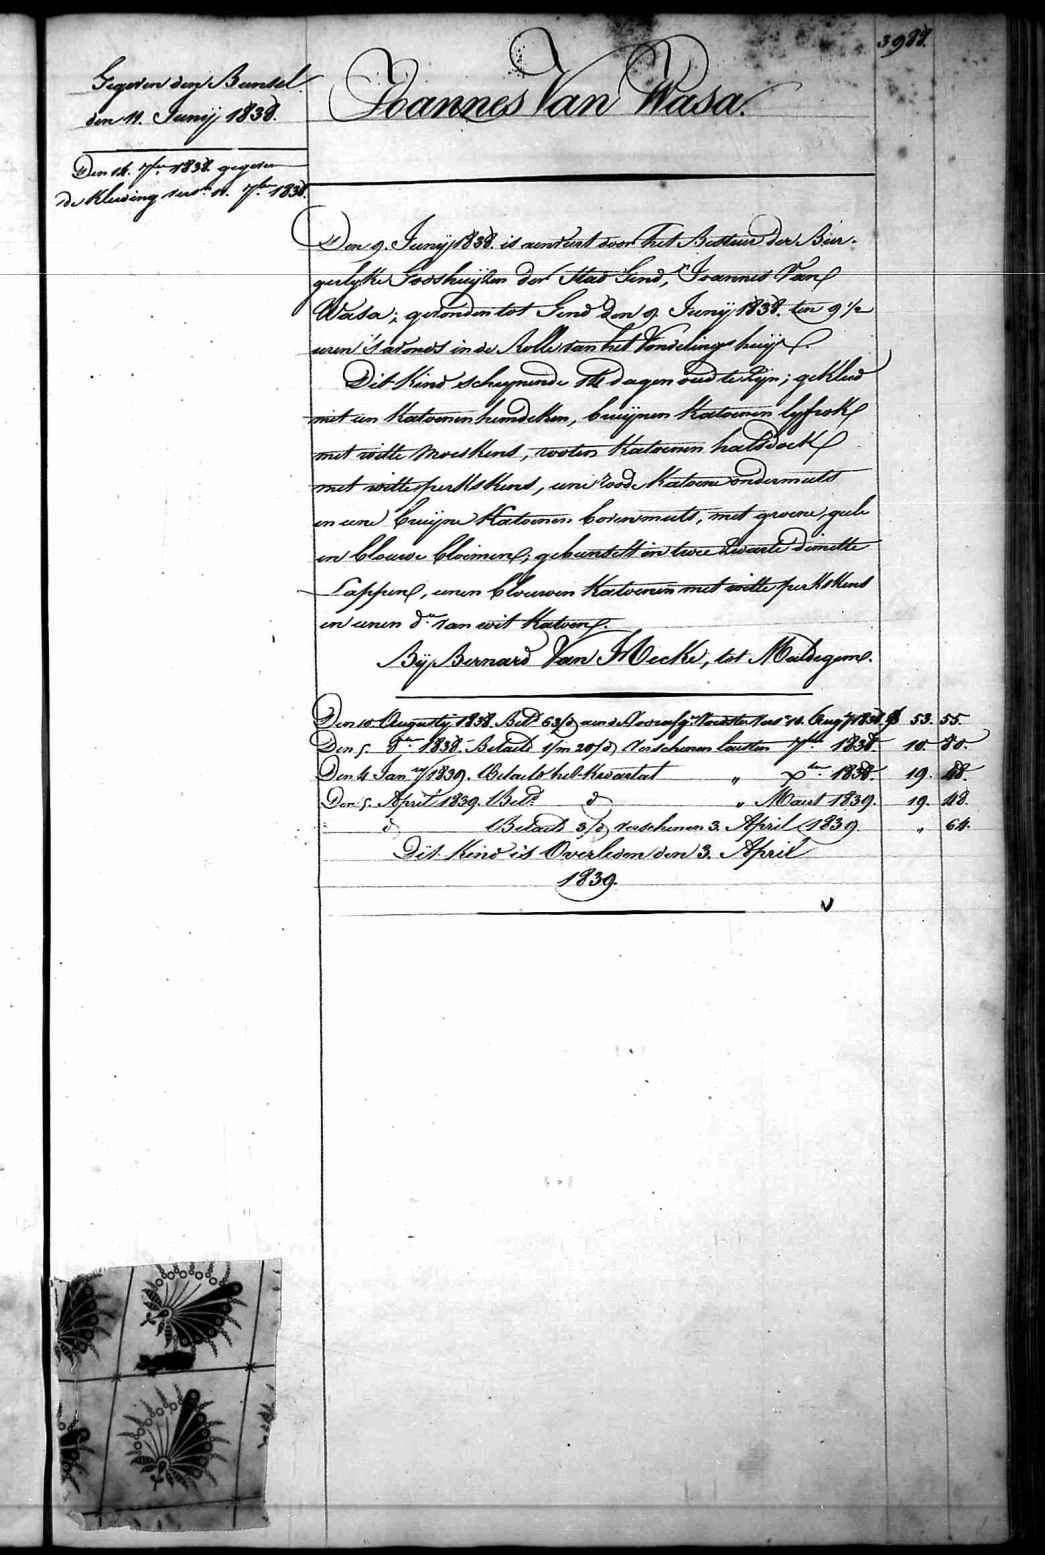 3988.
Joannes Van Wasa.
Gegeven den Bunsel
den 11. Junij 1838.
Den 14. 7ber 1838 gegeven
de Kleeding 7ber 1838.
Den 9. Junij 1838. is aenveirt door het Bestuer der Bur-
gerlyke Godshuijzen der Stad Gend, Joannes Van
Wasa; gevonden tot Gend den 9. Junij 1838. ten 9 1/2
uren 's avonds in de Rolle van het Vondelinghuijs.
Dit Kind schynende dagen oud te zijn; gekleed
met een Katoenen hemdeken, bruijnen Katoenen lyfrok
met witte moeskens, rooden Katoenen halsdoek
met witte perkskens, eene roode Katoene ondermuts
en eene bruijne Katoenen bovenmuts, met groene, gele
en blauwe bloemen; gebunselt in twee zwarte dimitte
Lappen, eenen blauwen Katoenen met witte perkskens
en eenen do van wit Katoen.
Bij Bernard Van Hecke, tot Maldegem.
Den 10. Augusty 1838. Betd 63/d 10. Aug 1838. 53. 55.
Den 5. 8ber 1838. Betaelt verschenen laesten 7ber 1838. 10. 80.
Den 4 Jany 1839. Betaelt het Kwartael " xber 1838. 19. 48.
Den 5. April 1839. Betd d " Maert 1839. 19. 48.
d Betaelt 3/d verschenen 3. April 1839. " 64.
Dit Kind is Overleden den 3. April
1839.